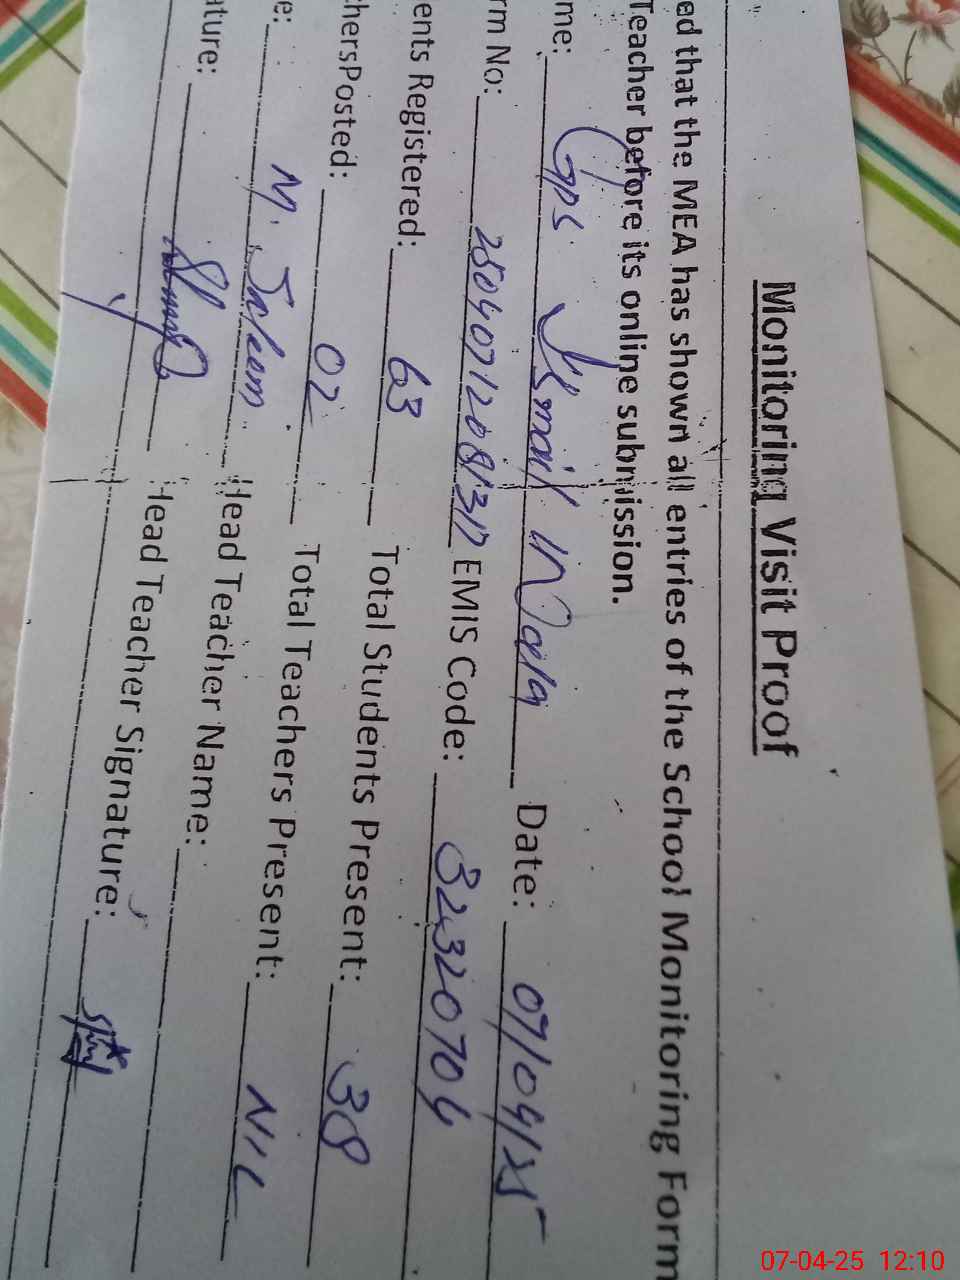 Monitoring Visit Proof
ed that the MEA has shown all entries of the School Monitoring Form
Teacher before its online submission.
me: Gps Ismail Wala Date: 07/04/25
rm No: EMIS Code: 32320704
ents Registered: 63 Total Students Present: 38
hersPosted: 02 Total Teachers Present: NIL
e: M. Saleem Head Teacher Name:
ature: Head Teacher Signature:
07-04-25 12:10